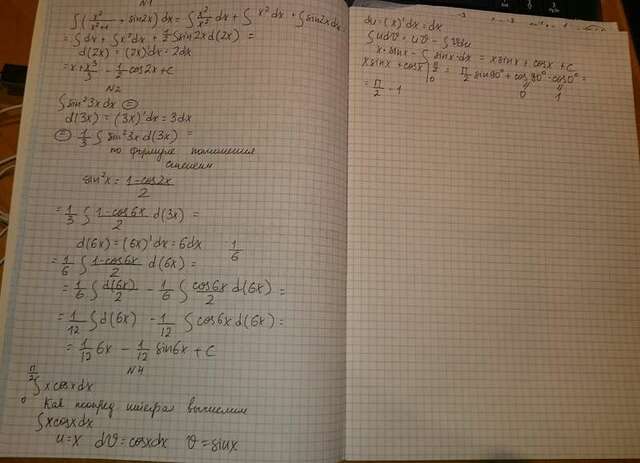 N1
∫(x²/(x²+1) + sin2x)dx = ∫x²/x² dx + ∫x²dx + ∫sin2xdx
= ∫dx + ∫x²dx + 1/2∫sin2x d(2x) =
d(2x) = (2x)'dx = 2dx
= x + x³/3 - 1/2 cos2x + C
N2
∫sin²3xdx ⊜
d(3x) = (3x)'dx = 3dx
⊜ 1/3∫sin²3x d(3x) =
по формуле понижения
степени
sin²x = (1-cos2x)/2
= 1/3∫(1-cos6x)/2 d(3x) =
d(6x) = (6x)'dx = 6dx 1/6
= 1/6∫(1-cos6x)/2 d(6x) =
= 1/6∫d(6x)/2 - 1/6∫cos6x/2 d(6x) =
= 1/12∫d(6x) - 1/12∫cos6x d(6x) =
= 1/12 6x - 1/12 sin6x + C
N4
∫₀^(π/2) xcosxdx
Как неопред интеграл вычислим
∫xcosxdx
u=x dV=cosxdx V=sinx
du=(x)'dx=dx
∫udV = uV - ∫Vdu
x·sinx - ∫sinx·dx = xsinx + cosx + C
xsinx + cosx |₀^(π/2) = π/2 sin90° + cos90° - cos0° =
0 1
= π/2 - 1